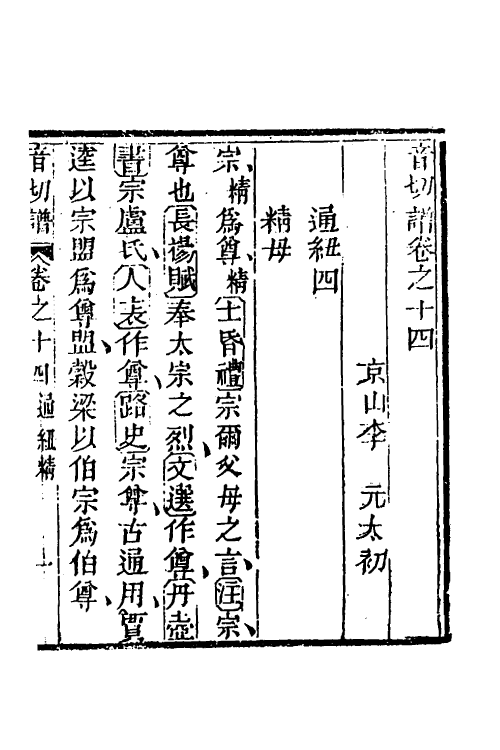 音切譜卷之十四
京山李　元太初
通紐四
精母
宗精爲尊精士昏禮宗爾父母之言注宗
尊也長楊賦奉太宗之烈文選作尊丹壺
書宗盧氏人表作尊路史宗尊古通用賈
逵以宗盟爲尊盟穀梁以伯宗爲伯尊
音切譜卷之十四通紐精　一